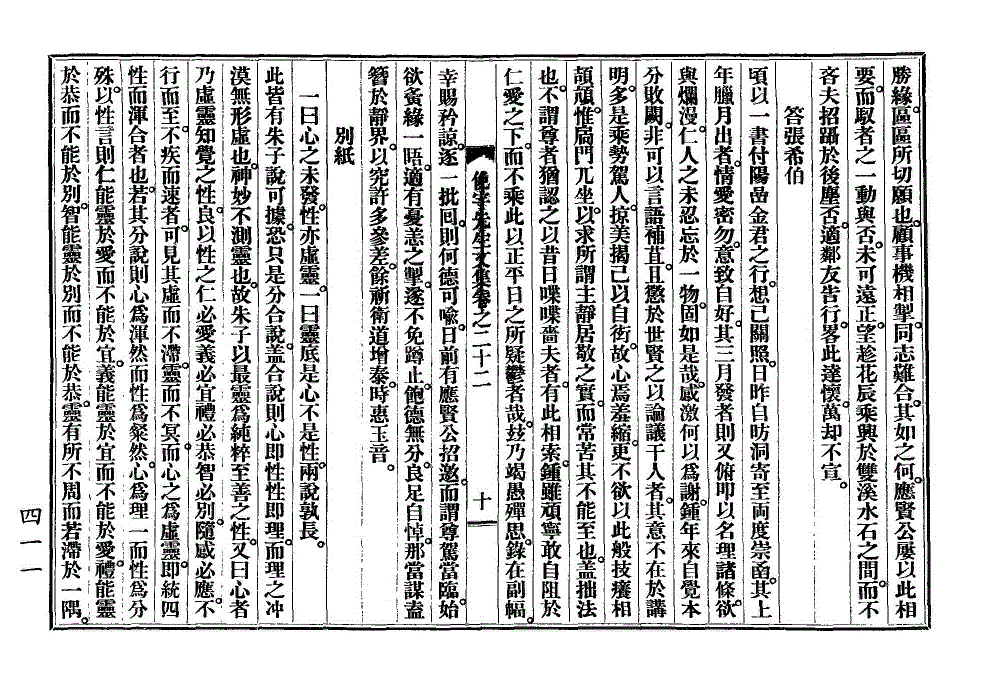 勝緣。區區所切願也。顧事機相掣。同志難合。其如之何。應賢公屢以此相
要。而馭者之一動與否。未可遠正。望趁花辰乘興於雙溪水石之間。而不
吝夫招躡於後塵否。適鄰友告行。畧此達懷。萬却不宣。
答張希伯
頃以一書付陽嵒金君之行。想已關照。日昨自昉洞寄至兩度崇函。其上
年臘月出者。情愛密勿。意致自好。其三月發者則又俯叩以名理諸條。欲
與爛漫。仁人之未忍忘於一物。固如是哉。感激何以爲謝。鍾年來自覺本
分敗闕。非可以言語補苴。且懲於世賢之以論議干人者。其意不在於講
明。多是乘勢駕人。掠美揭己以自衒。故心焉羞縮。更不欲以此般技癢相
頡頏。惟扃門兀坐。以求所謂主靜居敬之實。而常苦其不能至也。盖拙法
也。不謂尊者猶認之以昔日喋喋嗇夫者。有此相索。鍾雖頑寧敢自阻於
仁愛之下。而不乘此以正平日之所疑鬱者哉。玆乃竭愚殫思。錄在副幅。
俛宇先生文集卷之二十二
十
幸賜矜諒。逐一批回。則何德可喩。日前有應賢公招邀。而謂尊駕當臨。始
欲夤緣一晤。適有憂恙之掣。遂不免蹲止。飽德無分。良足自悼。那當謀盍
簪於靜界。以究許多參差。餘祈衛道增泰。時惠玉音。
別紙
一曰心之未發。性亦虛靈。一曰靈底是心不是性。兩說孰長。
此皆有朱子說可據。恐只是分合說。盖合說則心卽性性卽理。而理之冲
漠無形虛也。神妙不測靈也。故朱子以最靈爲純粹至善之性。又曰心者
乃虛靈知覺之性。良以性之仁必愛義必宜禮必恭智必別。隨感必應。不
行而至。不疾而速者。可見其虛而不滯。靈而不冥。而心之爲虛靈。卽統四
性而渾合者也。若其分說則心爲渾然而性爲粲然。心爲理一而性爲分
殊。以性言則仁能靈於愛而不能於宜。義能靈於宜而不能於愛。禮能靈
於恭而不能於別。智能靈於別而不能於恭。靈有所不周而若滯於一隅。
四一一